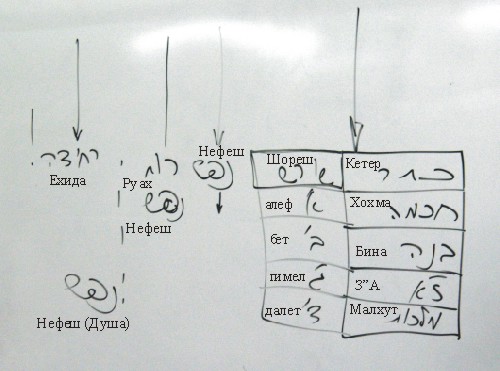 Нефеш
נפש
יחידה
Ехида
רוח
Руах
נפש
Нефеш
נפש
Нефеш (Душа)
Шореш
שורש
Кетер
כתר
алеф א'
Хохма
חכמה
бет ב'
Бина בינה
гимел ג'
З”А ז"א
далет ד'
Малхут מלכות